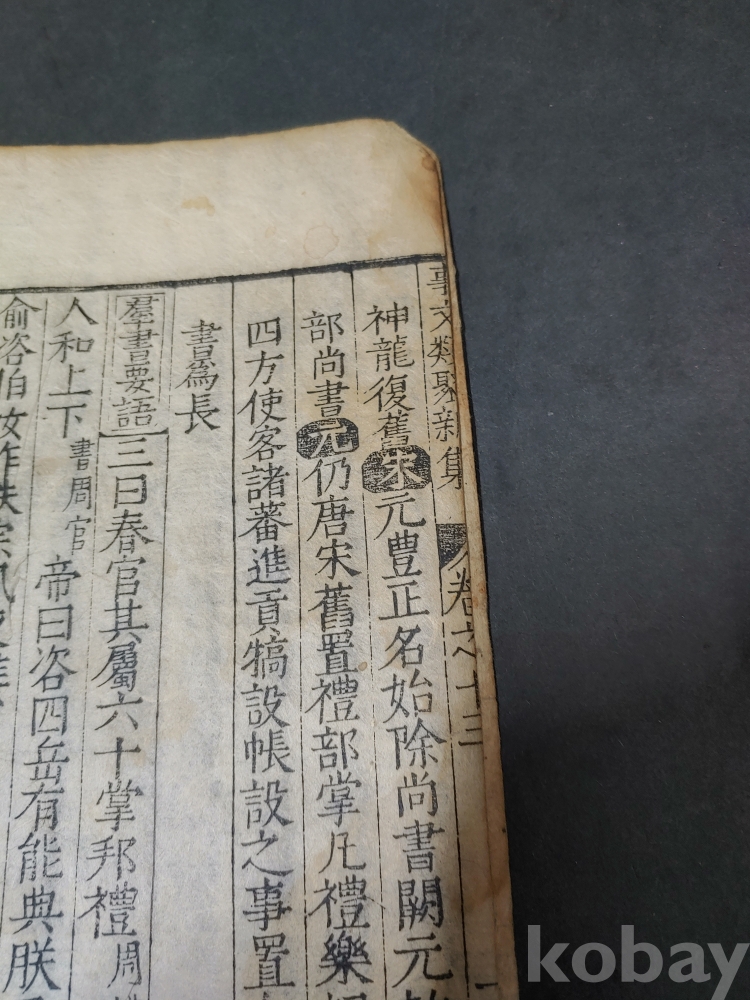 事文類聚新集 卷之十三
神龍復舊宋元豊正名始除尚書闕元
部尚書元仍唐宋舊置禮部掌凡禮樂
四方使客諸蕃進貢犒設帳設之事置
書爲長
羣書要語三曰春官其屬六十掌邦禮周
人和上下書周官帝曰咨四岳有能典朕
俞咨伯汝作秩宗夙夜
kobay